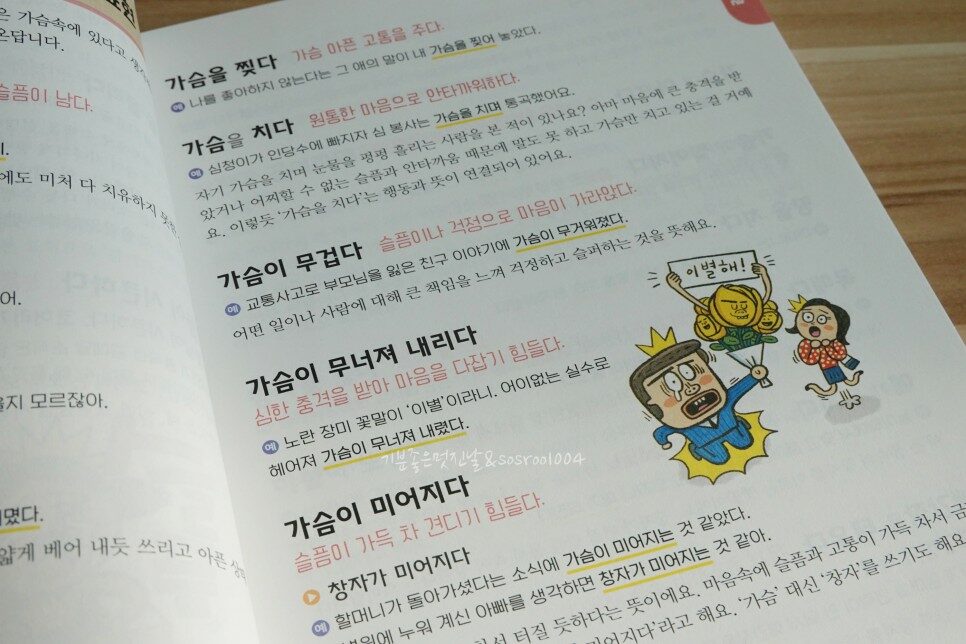 은 가슴속에 있다고
답니다.
슬픔이 남다.
에도 미처 다 치유하지
어.
을지 모르잖아.
몄다.
얇게 베어 내듯 쓰리고 아픈
가슴을 찢다 가슴 아픈 고통을 주다.
예 나를 좋아하지 않는다는 그 애의 말이 내 가슴을 찢어 놓았다.
가슴을 치다 원통한 마음으로 안타까워하다.
예 심청이가 인당수에 빠지자 심 봉사는 가슴을 치며 통곡했어요.
자기 가슴을 치며 눈물을 펑펑 흘리는 사람을 본 적이 있나요? 아마 마음에 큰 충격을 받
았거나 어찌할 수 없는 슬픔과 안타까움 때문에 말도 못 하고 가슴만 치고 있는 걸 거예
요. 이렇듯 '가슴을 치다'는 행동과 뜻이 연결되어 있어요.
가슴이 무겁다 슬픔이나 걱정으로 마음이 가라앉다.
예 교통사고로 부모님을 잃은 친구 이야기에 가슴이 무거워졌다.
어떤 일이나 사람에 대해 큰 책임을 느껴 걱정하고 슬퍼하는 것을 뜻해요.
가슴이 무너져 내리다
심한 충격을 받아 마음을 다잡기 힘들다.
예 노란 장미 꽃말이 '이별'이라니. 어이없는 실수로
헤어져 가슴이 무너져 내렸다.
이별해!
기분좋은멋진날&sosroo1004
가슴이 미어지다
슬픔이 가득 차 견디기 힘들다.
창자가 미어지다
예 할머니가 돌아가셨다는 소식에 가슴이 미어지는 것 같았다.
예 병원에 누워 계신 아빠를 생각하면 창자가 미어지는 것 같아.
터질 듯하다는 뜻이에요. 마음속에 슬픔과 고통이 가득 차서
미어지다'라고 해요. '가슴' 대신 '창자'를 쓰기도 해요